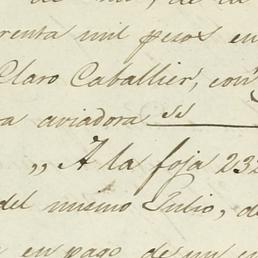 de mil, de la
renta mil pesos en
Claro Caballier, con
a aviadora
„ A la foja 232
del mismo Julio, de
en pago de un